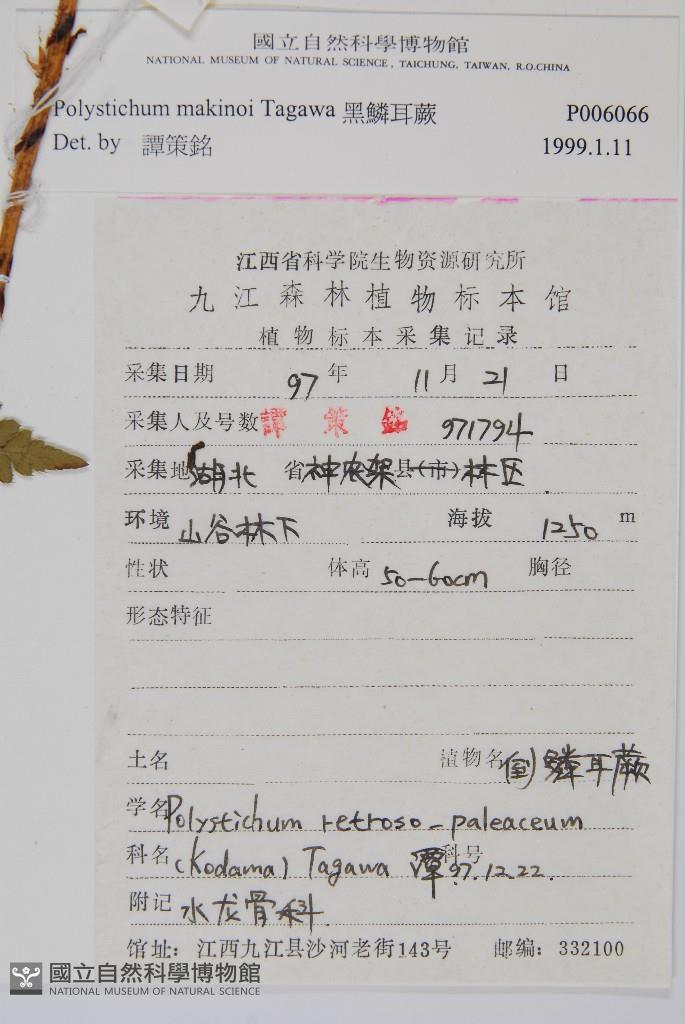 國立自然科學博物館
NATIONAL MUSEUM OF NATURAL SCIENCE, TAICHUNG, TAIWAN, R.O.CHINA
Polystichum makinoi Tagawa 黑鱗耳蕨 P006066
Det. by 譚策銘 1999.1.11
江西省科学院生物资源研究所
九江森林植物标本馆
植物标本采集记录
采集日期 97 年 11 月 21 日
采集人及号数 譚策銘 971794
采集地 湖北 省 神农架 县(市) 林区
环境 山谷林下 海拔 1250 m
性状 体高 50-60cm 胸径
形态特征
土名 植物名 倒鳞耳蕨
学名 Polystichum retroso-paleaceum
科名 (Kodama) Tagawa 譚 科号 97.12.22.
附记 水龙骨科
馆址: 江西九江县沙河老街143号 邮编: 332100
國立自然科學博物館
NATIONAL MUSEUM OF NATURAL SCIENCE